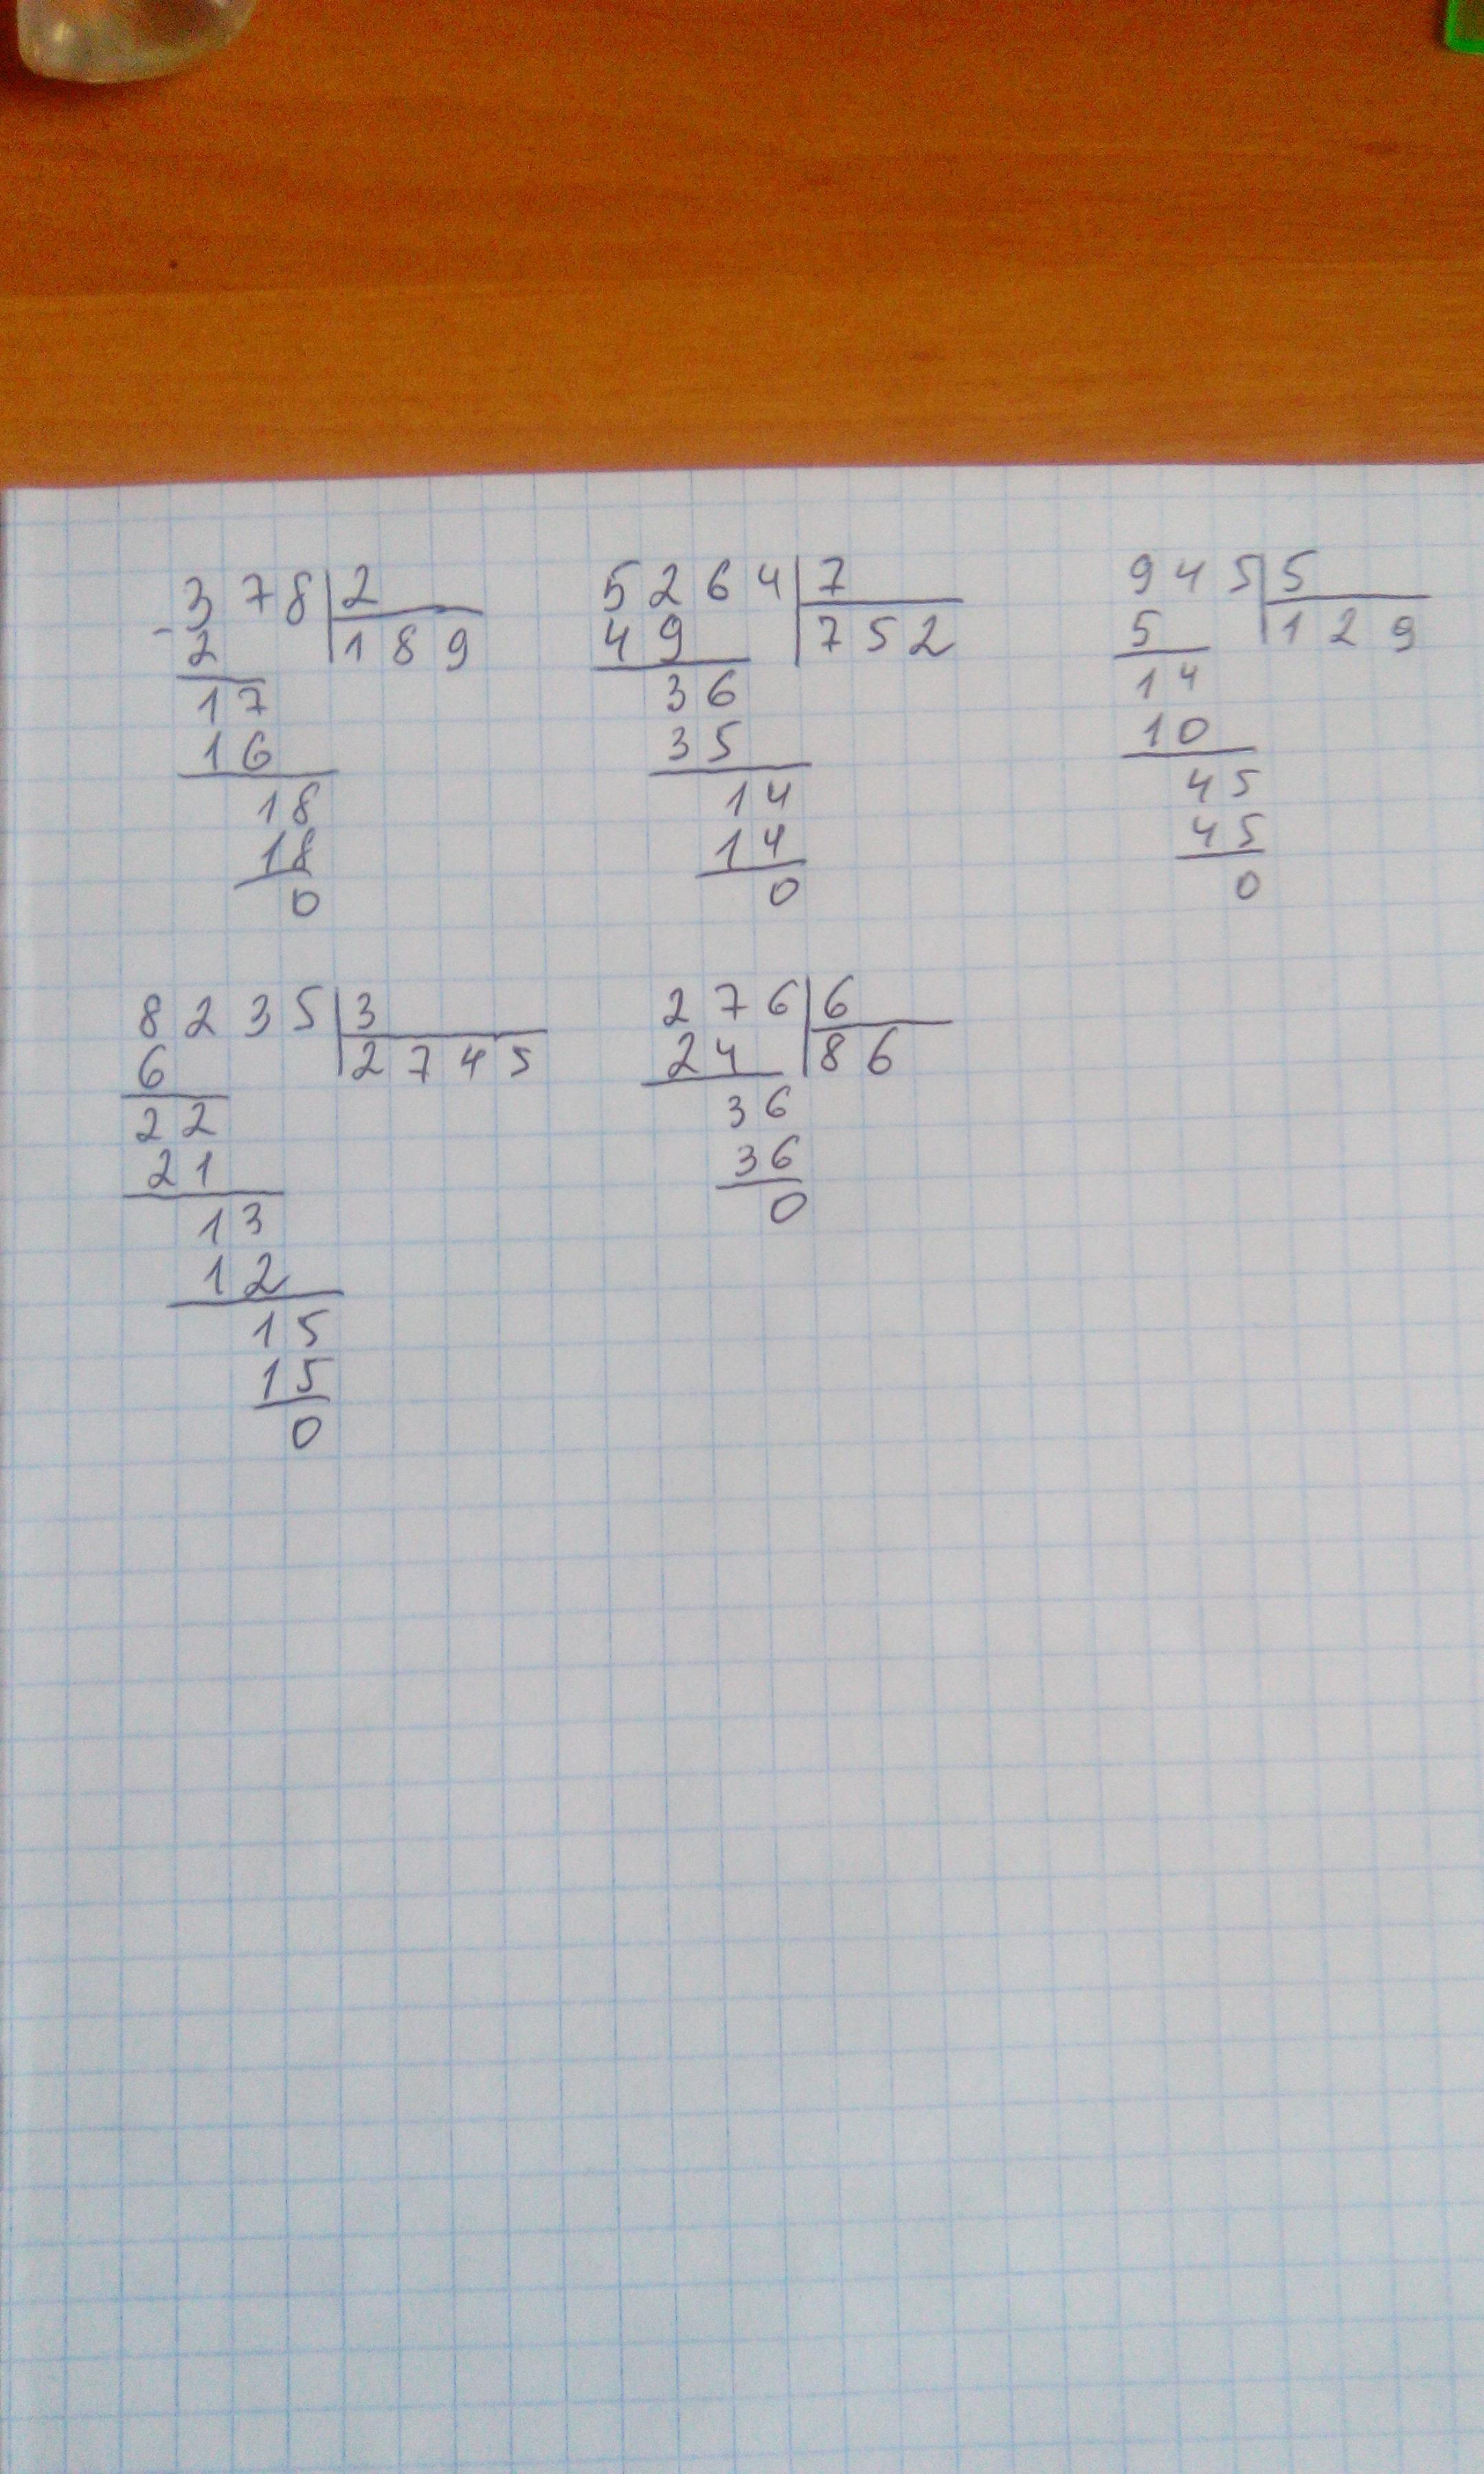 378|2
-2 |189
17
16
18
18
0
5264|7
49 |752
36
35
14
14
0
945|5
5 |129
14
10
45
45
0
8235|3
6 |2745
22
21
13
12
15
15
0
276|6
24 |86
36
36
0